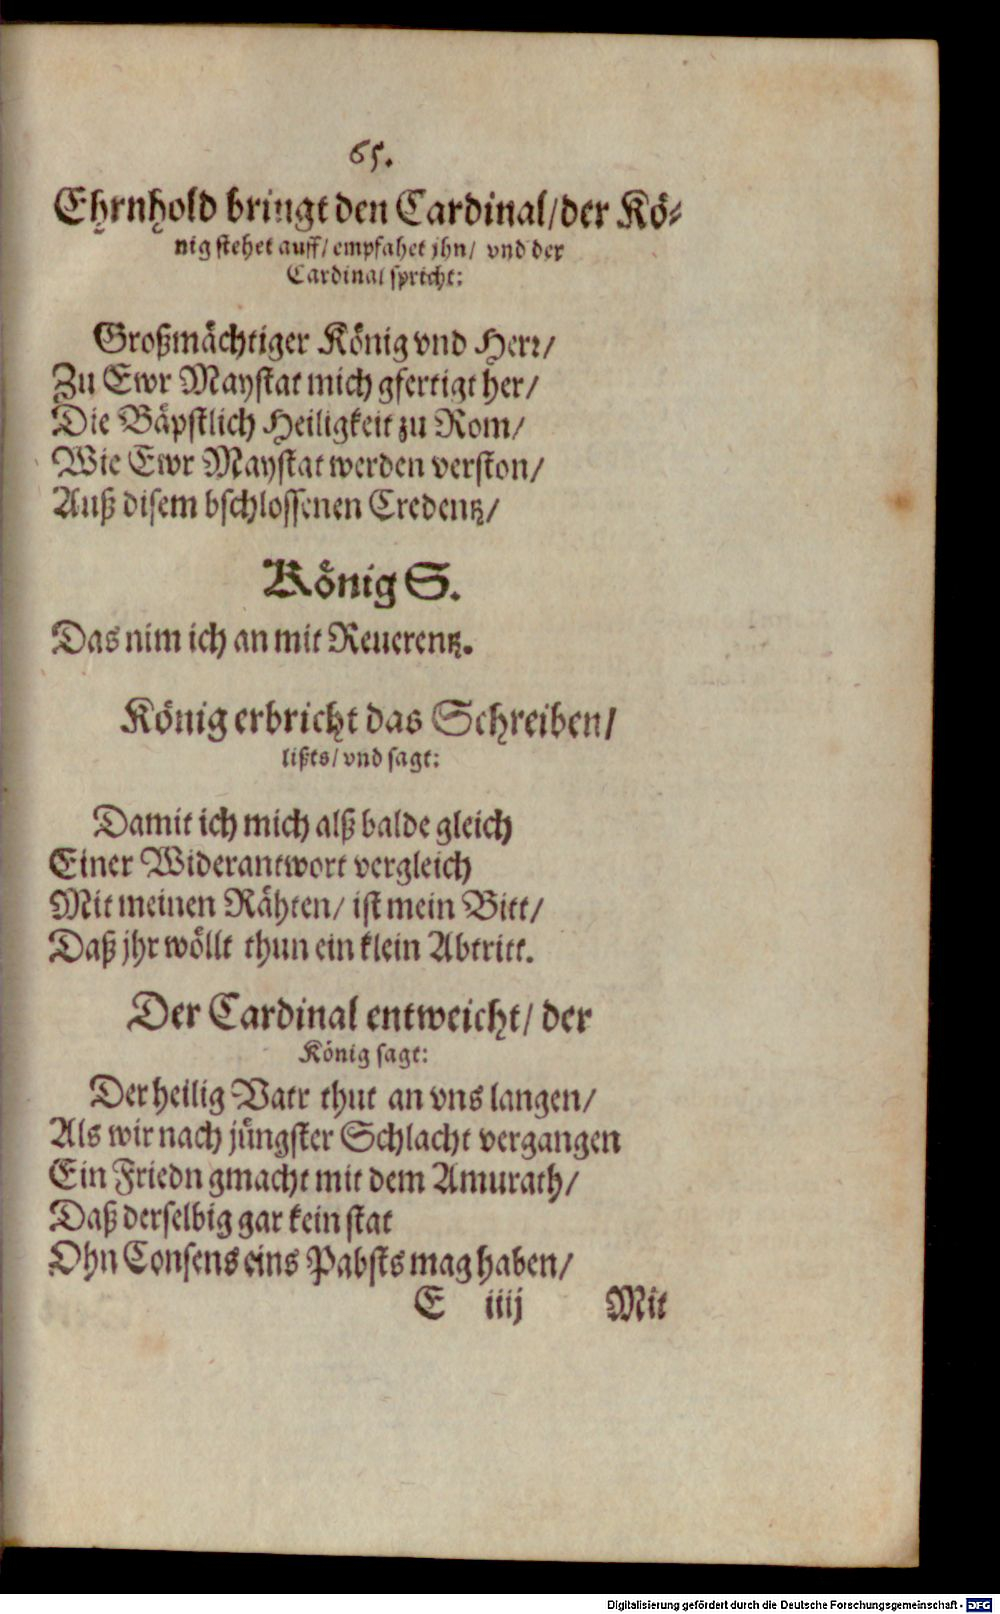 65.
Ehrnhold bringt den Cardinal/der Kö-
nig stehet auff/ empfahet jhn/ vnd der
Cardinal spricht:
Großmächtiger König vnd Herr/
Zu Ewr Maystat mich gfertigt her/
Die Bäpstlich Heiligkeit zu Rom/
Wie Ewr Maystat werden verston/
Auß disem bschlossenen Credentz/
König S.
Das nim ich an mit Reuerentz.
König erbricht das Schreiben/
lißts/ vnd sagt:
Damit ich mich alß balde gleich
Einer Widerantwort vergleich
Mit meinen Rähten/ ist mein Bitt/
Daß jhr wöllt thun ein klein Abtritt.
Der Cardinal entweicht/ der
König sagt:
Der heilig Vatr thut an vns langen/
Als wir nach jüngster Schlacht vergangen
Ein Friedn gmacht mit dem Amurath/
Daß derselbig gar kein stat
Ohn Consens eins Pabsts mag haben/
E iiij Mit
Digitalisierung gefördert durch die Deutsche Forschungsgemeinschaft - DFG